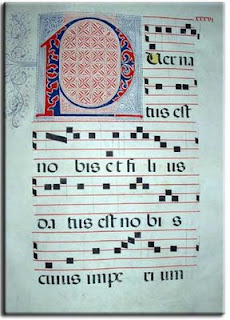 xxxvi
Puer na
tus est
no bis et fi li us
da tus est no bi s
cuius impe rium